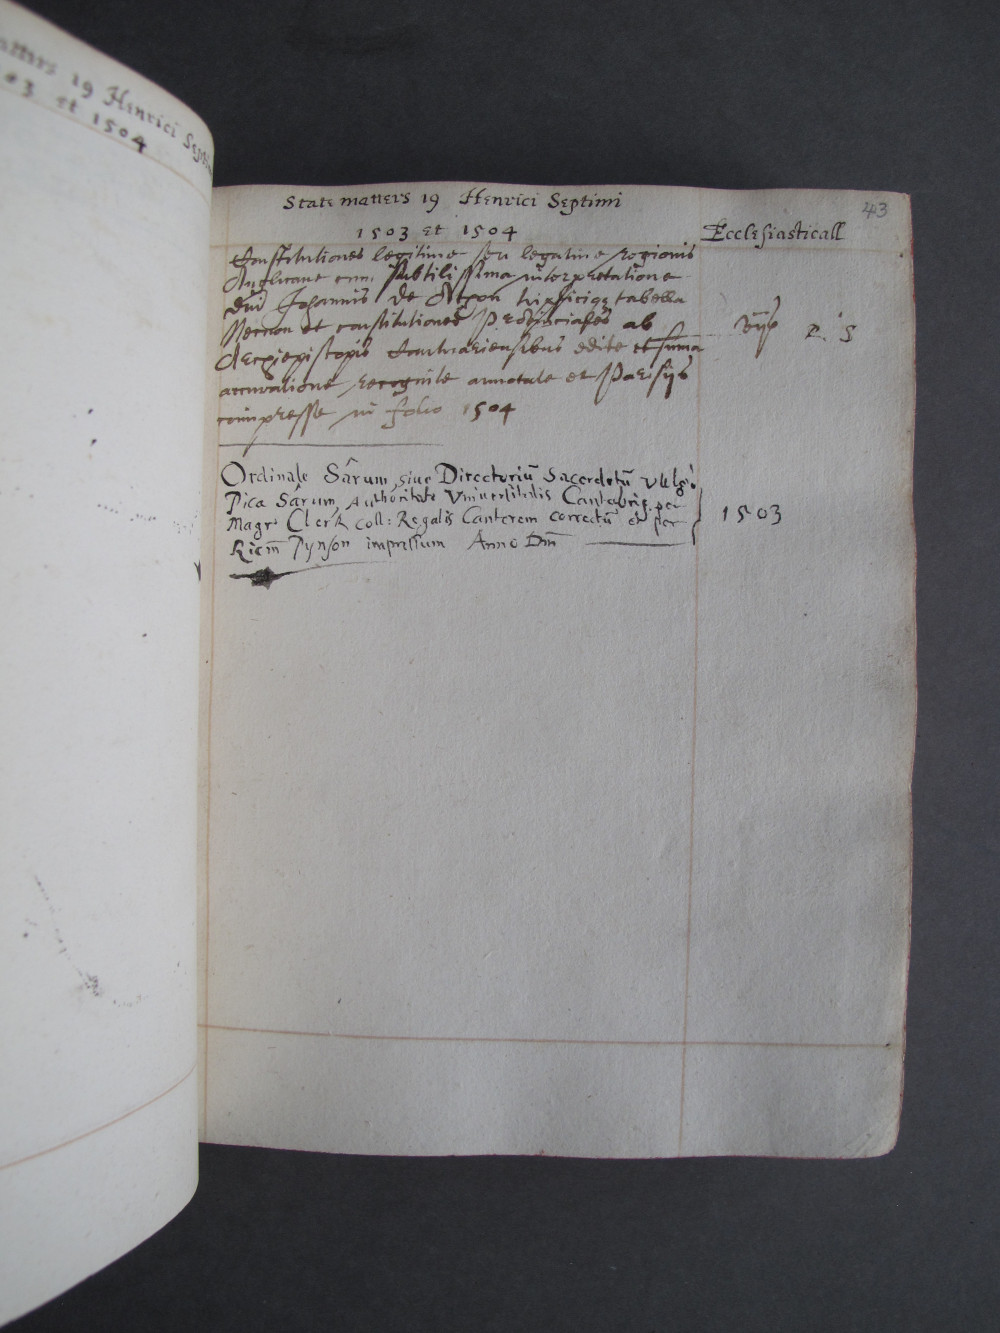 matters 19 Henrici Septimi
03 et 1504
43
State matters 19 Henrici Septimi
1503 et 1504
Ecclesiasticall
Constitutiones legitime seu legatine regionis
Anglicane cum subtilissima interpretatione
dni Johannis de Aton tripliciq tabella
Necnon et constitutiones Provinciales ab
Archiepiscopis Cantuariensibus edite et suma
accuratione recognite annotate et Parisijs
coimpresse in folio 1504
S
Ordinale Sarum, sive Directoriu Sacerdotu vulgo
Pica Sarum, Authoritate Universitatis Cantabrig. per
Magr Clerk Coll: Regalis Canterem correctu et per
Ricm Pynson impressum Anno Dm
1503